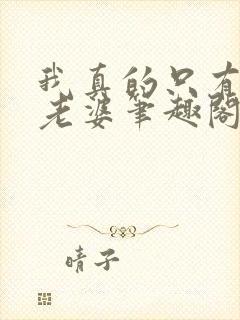 我真的只有
老婆笔趣阁
晴子